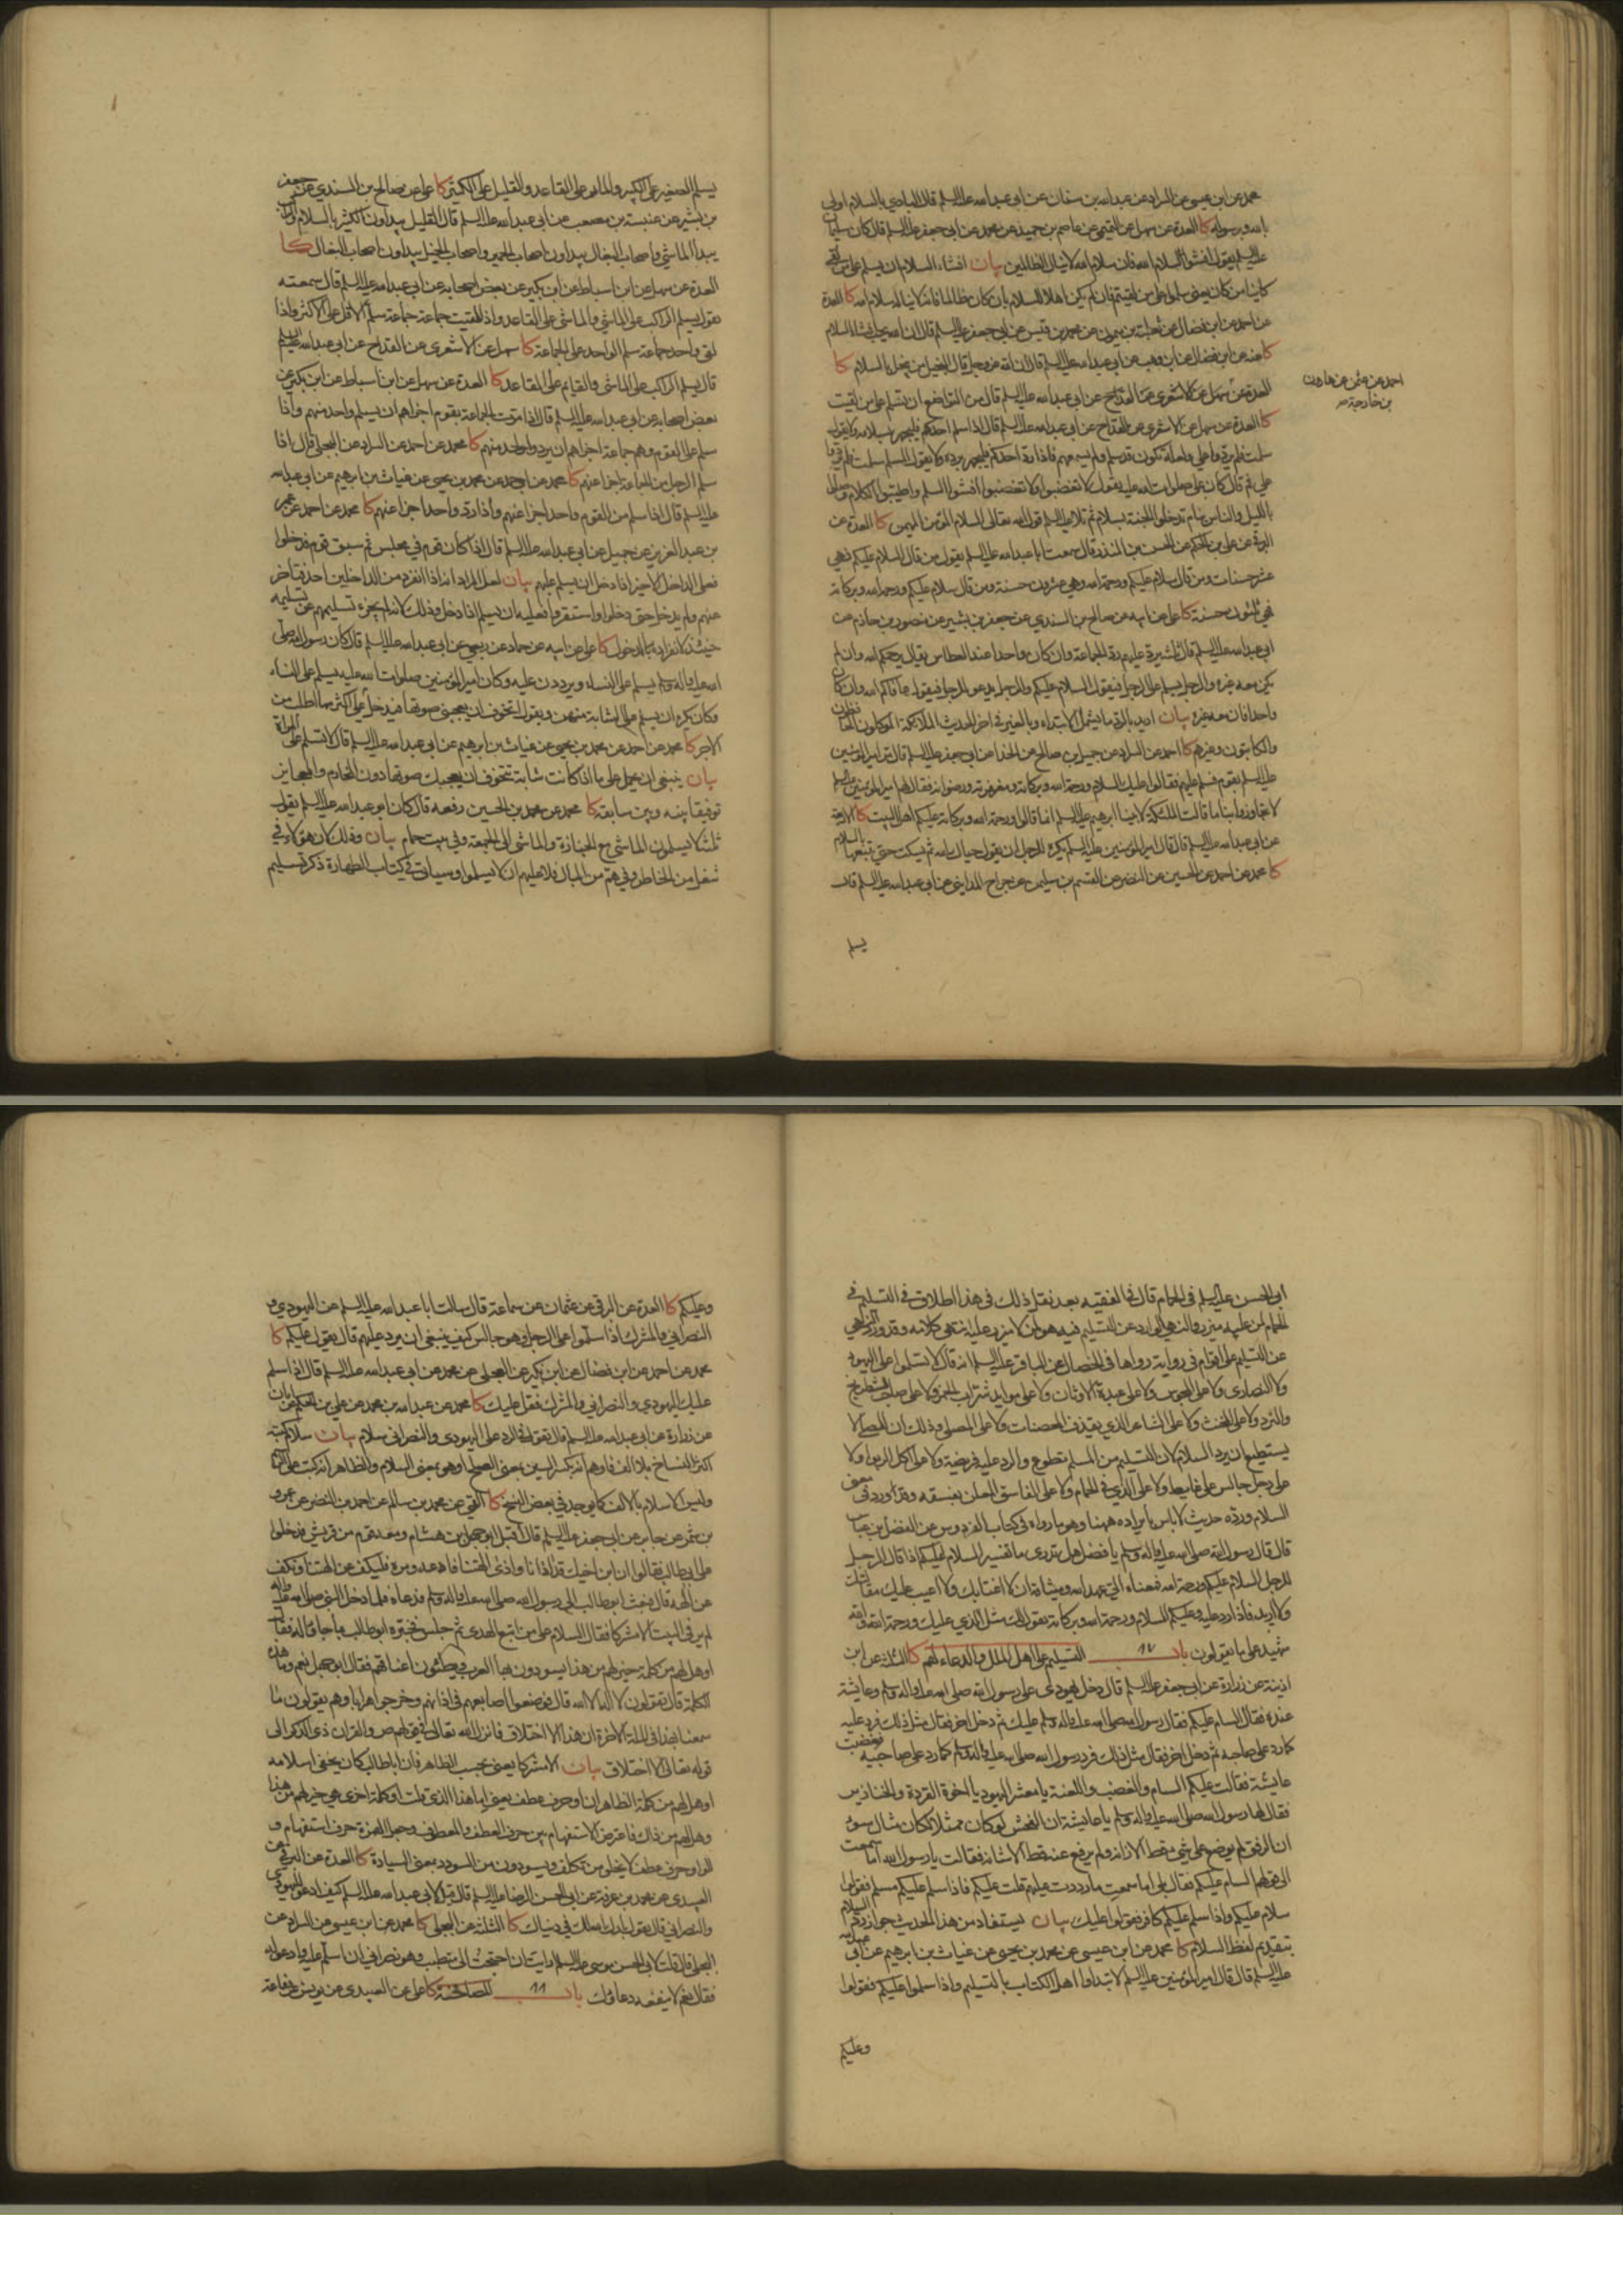 محمد عن ابن عيسى عن السراد عن عبدالله بن سنان عن ابى عبدالله عليه السلم قال البادي بالسلام اولى
بالله وبرسوله كا العدة عن سهل عن التميمي عن عاصم بن حميد عن محمد عن ابى جعفر عليه السلم قال كان سليمان
عليه السلم يقول افشوا سلام الله فان سلام الله لا ينال الظالمين بيان افشاء السلام ان يسلم على من لقي
كاينا من كان يعنى سلموا على من لقيتم فان لم يكن اهلا للسلام بان كان ظالما فانه لا يناله سلام الله كا العدة
عن احمد عن ابن فضال عن ثعلبة بن ميمون عن محمد بن قيس عن ابى جعفر عليه السلم قال ان الله يحب افشاء السلام
كا عنه عن ابن فضال عن ابن وهب عن ابى عبدالله عليه السلم قال ان الله عز وجل قال البخيل من يبخل بالسلام كا
احمد عن عثمن عن هارون
بن خارجة صح
العدة عن سهل عن الاشعرى عن القداح عن ابى عبدالله عليه السلم قال من التواضع ان تسلم على من لقيت
كا العدة عن سهل عن الاشعرى عن القداح عن ابى عبدالله عليه السلم قال اذا سلم احدكم فليجهر بسلامه ولا يقول
سلمت فلم يردوا علي ولعله تكون قد سلم ولم يسمعهم فاذا رد احدكم فليجهر برده ولا يقول المسلم سلمت فلم يردوا
علي ثم قال كان علي صلوات الله عليه يقول لا تغضبوا ولا تغضبوا افشوا السلم واطيبوا الكلام وصلوا
بالليل والناس نيام تدخلوا الجنة بسلام ثم تلا عليه السلم قول الله تعالى السلام المؤمن المهيمن كا العدة عن
البرقى عن علي بن الحكم عن الحسن بن المنذر قال سمعت ابا عبدالله عليه السلم يقول من قال السلام عليكم فهي
عشر حسنات ومن قال سلام عليكم ورحمة الله وهي عشرون حسنة ومن قال سلام عليكم ورحمة الله وبركاته
فهي ثلثون حسنة كا علي عن ابيه عن صالح بن السندي عن جعفر بن بشير عن منصور بن حازم عن
ابى عبدالله عليه السلم قال ثلثة يرد عليهم رد الجماعة وان كان واحدا عند العطاس يقال يرحمكم الله وان لم
يكن معه غيره والرجل يسلم على الرجل فيقول السلام عليكم والرجل يدعو للرجل فيقول عافاكم الله وان كان
واحدا فان معه غيره بيان اريد بالرد ما يشمل الابتداء وبالغير في اخر الحديث الملائكة الموكلون الحافظون
والكاتبون وغيرهم كا احمد عن السراد عن جميل بن صالح عن الحذاء عن ابى جعفر عليه السلم قال مر امير المؤمنين
عليه السلم بقوم فسلم عليهم فقالوا عليك السلام ورحمة الله وبركاته ومغفرته ورضوانه فقال لهم امير المؤمنين عليه السلم
لا تجاوزوا بنا ما قالت الملئكة لابينا ابرهيم عليه السلم انما قالوا ورحمة الله وبركاته عليكم اهل البيت كا الاربعة
عن ابى عبدالله عليه السلم قال قال امير المؤمنين عليه السلم يكره للرجل ان يقول حياك الله ثم يسكت حتى يتبعها بالسلام
كا محمد عن احمد عن الحسين عن النضر عن القسم بن سليمن عن جراح المدايني عن ابى عبدالله عليه السلم قال
يسلم
يسلم الصغير على الكبير والمار على القاعد والقليل على الكثير كا علي عن صالح بن السندي عن جعفر
بن بشير عن عنبسة بن مصعب عن ابى عبدالله عليه السلم قال القليل يبداون الكثير بالسلام والراكب
يبدا الماشي واصحاب البغال يبداون اصحاب الحمير واصحاب الخيل يبداون اصحاب البغال كا
العدة عن سهل عن ابن اسباط عن ابن بكير عن بعض اصحابه عن ابى عبدالله عليه السلم قال سمعته
يقول يسلم الراكب على الماشي والماشي على القاعد واذا لقيت جماعة جماعة سلم الاقل على الاكثر واذا
لقي واحد جماعة سلم الواحد على الجماعة كا سهل عن الاشعرى عن القداح عن ابى عبدالله عليه السلم
قال يسلم الراكب على الماشي والقايم على القاعد كا العدة عن سهل عن ابن اسباط عن ابن بكير عن
بعض اصحابه عن ابى عبدالله عليه السلم قال اذا مرت الجماعة بقوم اجزاهم ان يسلم واحد منهم واذا
سلم على القوم وهم جماعة اجزاهم ان يرد واحد منهم كا محمد عن احمد عن السراد عن البجلي قال اذا
سلم الرجل من الجماعة اجزا عنهم كا محمد عن احمد عن محمد بن يحيى عن غياث بن ابرهيم عن ابى عبدالله
عليه السلم قال اذا سلم من القوم واحد اجزا عنهم واذا رد واحد اجزا عنهم كا محمد عن احمد عن عمر
بن عبد العزيز عن جميل عن ابى عبدالله عليه السلم قال اذا كان قوم في مجلس ثم سبق قوم فدخلوا
فعلى الداخل الاخير اذا دخل ان يسلم عليهم بيان لعل المراد انه اذا انفرد من الداخلين احد فتاخر
عنهم ولم يدخل حتى دخلوا واستقروا فعليه ان يسلم اذا دخل وذلك لانه لم يجزء تسليمهم عن تسليمه
حينئذ لانفراده بالدخول كا علي عن ابيه عن حماد عن ربعي عن ابى عبدالله عليه السلم قال كان رسول الله صلى
الله عليه واله وسلم يسلم على النساء ويرددن عليه وكان امير المؤمنين صلوات الله عليه يسلم على النساء
وكان يكره ان يسلم على الشابة منهن ويقول اتخوف ان يعجبني صوتها فيدخل علي اكثر مما اطلب من
الاجر كا محمد عن احمد عن محمد بن يحيى عن غياث بن ابرهيم عن ابى عبدالله عليه السلم قال لا تسلم على المراة
بيان ينبغي ان يحمل على ما اذا كانت شابة تتخوف ان يعجبك صوتها دون المحارم والعجايز
توفيقا بينه وبين سابقه كا محمد عن محمد بن الحسين رفعه قال كان ابو عبدالله عليه السلم يقول
ثلثة لا يسلمون الماشي مع الجنازة والماشي الى الجمعة وفي بيت حمام بيان وذلك لان هؤلاء في
شغل من الخاطر وفي هم من البال فلا عليهم ان لا يسلموا وسياتى في كتاب الطهارة ذكر تسليم
ابى الحسن عليه السلم في الحمام قال في الفقيه بعد نقل ذلك في هذا اطلاق في التسليم في
الحمام لمن عليه ميزر والنهي الوارد عن التسليم فيه هو لمن لا ميزر عليه انتهى كلامه وقد ورد النهي
عن التسليم على اقوام في رواية رواها في الخصال عن الباقر عليه السلم انه قال لا تسلموا على اليهود
ولا النصارى ولا على المجوس ولا على عبدة الاوثان ولا على موايد شراب الخمر ولا على صاحب الشطرنج
والنرد ولا على المخنث ولا على الشاعر الذي يقذف المحصنات ولا على المصلي وذلك ان المصلي لا
يستطيع ان يرد السلام لان التسليم من المسلم تطوع والرد عليه فريضة ولا على اكل الربوا ولا
على رجل جالس على غايط ولا على الذي في الحمام ولا على الفاسق المعلن بفسقه وقد ورد في معنى
السلام ورده حديث لا باس بايراده ههنا وهو ما رواه في كتاب الفردوس عن الفضل بن عباس
قال قال رسول الله صلى الله عليه واله وسلم يا فضل هل تدري ما تفسير السلام عليكم اذا قال الرجل
للرجل السلام عليكم ورحمة الله فمعناه الي عهد الله وميثاقه ان لا اغتابك ولا اعيب عليك مقالتك
ولا اريد فاذا رد عليه وعليكم السلام ورحمة الله وبركاته يقول لك مثل الذي عليك ورحمة الله والله
شهيد على ما يقولون باب ١٧ التسليم على اهل الملل والدعاء لهم كا الثلثة عن ابن
اذينة عن زرارة عن ابى جعفر عليه السلم قال دخل يهودي على رسول الله صلى الله عليه واله وسلم وعايشة
عنده فقال السام عليكم فقال رسول الله صلى الله عليه واله وسلم عليك ثم دخل اخر فقال مثل ذلك فرد عليه
كما رد على صاحبه ثم دخل اخر فقال مثل ذلك فرد رسول الله صلى الله عليه واله وسلم كما رد على صاحبيه فغضبت
عايشة فقالت عليكم السام والغضب واللعنة يا معشر اليهود يا اخوة القردة والخنازير
فقال لها رسول الله صلى الله عليه واله وسلم يا عايشة ان الفحش لو كان ممثلا لكان مثال سوء
ان الرفق لم يوضع على شيء قط الا زانه ولم يرفع عنه قط الا شانه فقالت يا رسول الله اما سمعت
الى قولهم السام عليكم فقال بلى اما سمعت ما رددت عليهم قلت عليكم فاذا سلم عليكم مسلم فقولوا
سلام عليكم واذا سلم عليكم كافر فقولوا عليك بيان يستفاد من هذا الحديث جواز رد السلام
بتقديم لفظ السلام كا محمد عن ابن عيسى عن محمد بن يحيى عن غياث بن ابرهيم عن ابى عبدالله
عليه السلم قال قال امير المؤمنين عليه السلم لا تبداوا اهل الكتاب بالتسليم واذا سلموا عليكم فقولوا
وعليكم
وعليكم كا العدة عن البرقى عن عثمان عن سماعة قال سالت ابا عبدالله عليه السلم عن اليهودي و
النصراني والمشرك اذا سلموا على الرجل وهو جالس كيف ينبغي ان يرد عليهم قال يقول عليكم كا
محمد عن احمد عن ابن فضال عن ابن بكير عن العجلي عن محمد عن ابى عبدالله عليه السلم قال اذا سلم
عليك اليهودي والنصراني والمشرك فقل عليك كا محمد عن عبدالله بن محمد عن علي بن الحكم عن ابان
عن زرارة عن ابى عبدالله عليه السلم قال تقول في الرد على اليهودي والنصراني سلام بيان سلام كتبه
اكثر النساخ بلا الف فاوهم انه بكسر السين بمعنى الصلح او هو بمعنى السلام والظاهر انه كتب على
وليس الا سلام بالالف كما يوجد في بعض النسخ كا القمي عن محمد بن سالم عن احمد بن النضر عن عمرو
بن شمر عن جابر عن ابى جعفر عليه السلم قال اقبل ابو جهل بن هشام ومعه قوم من قريش فدخلوا
على ابى طالب فقالوا ان ابن اخيك قد اذانا واذى الهتنا فادعه ومره فليكف عن الهتنا ونكف
عن الهه قال فبعث ابو طالب الى رسول الله صلى الله عليه واله وسلم فدعاه فلما دخل النبي صلى الله عليه واله
لم ير في البيت الا مشركا فقال السلام على من اتبع الهدى ثم جلس فخبره ابو طالب بما جاءوا له فقال
او هل لهم من كلمة خير لهم من هذا يسودون بها العرب ويطئون اعناقهم فقال ابو جهل نعم وما هذه
الكلمة قال تقولون لا اله الا الله قال فوضعوا اصابعهم في اذانهم وخرجوا هرابا وهم يقولون ما
سمعنا بهذا في الملة الاخرة ان هذا الا اختلاق فانزل الله تعالى في قولهم ص والقران ذي الذكر الى
قوله تعالى الا اختلاق بيان الا مشركا يعنى بحسب الظاهر فان ابا طالب كان يخفي اسلامه
او هل لهم من كلمة الظاهر ان او حرف عطف يعنى اما هذا الذي قلت او كلمة اخرى هي خير لهم من هذا
وهل لهم من ذلك فاعترض الاستفهام بين حرف العطف والمعطوف وجعل الهمزة حرف استفهام و
الواو حرف عطف لا يخلو من تكلف ويسودون من السودد بمعنى السيادة كا العدة عن البرقى عن
العبيدي عن محمد بن عرفة عن ابى الحسن الرضا عليه السلم قال قيل لابى عبدالله عليه السلم كيف ادعو لليهودي
والنصراني قال تقول بارك الله لك في دنياك كا الثلثة عن البجلي كا محمد عن ابن عيسى عن السراد عن
البجلي قال قلت لابى الحسن موسى عليه السلم ارايت ان احتجت الى متطبب وهو نصراني ان اسلم عليه وادعو له
فقال نعم لا ينفعه دعاؤك باب ١٨ المصافحة كا علي عن العبيدي عن يونس عن رفاعة